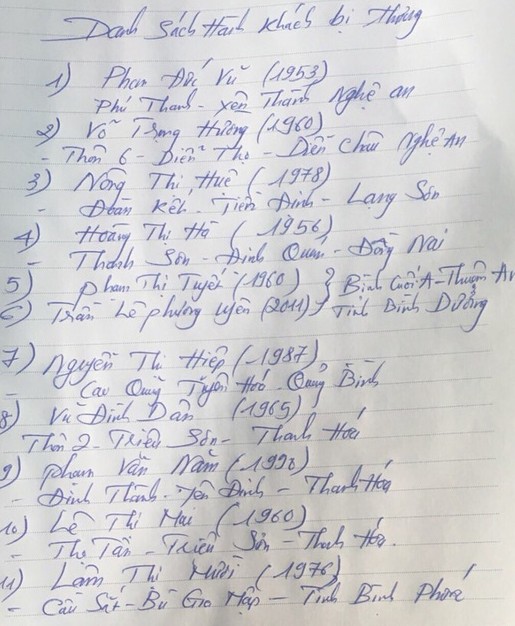 Danh Sách Hành Khách bị Thương
1) Phan Đức Vũ (1953)
Phú Thành - Yên Thành Nghệ an
2) Võ Trọng Hường (1960)
- Thôn 6 - Diễn Thọ - Diễn Châu Nghệ An
3) Nông Thị Huê (1978)
- Đoàn Kết. Tiến Định - Lạng Sơn
4) Hoàng Thị Hà (1956)
- Thanh Sơn - Định Quán - Đồng Nai
5) Phạm Thị Tuyết (1960) } Bình A - Thuận An
6) Trần Lê phương uyên (2011) } Tỉnh Bình Dương
7) Nguyễn Thị Hiệp (-1987)
- Cao Quảng Tuyên Hoá. Quảng Bình
8) Vũ Đình Dân (1965)
Thôn 2 - Triệu Sơn - Thanh Hoá
9) Phạm Văn Năm (1990)
- Định Thành - Yên Định - Thanh Hóa
10) Lê Thị Mai (1960)
- Thọ Tân - Triệu Sơn - Thanh Hóa.
11) Lâm Thị Mười (1976)
- Cầu Sắt - Bù Gia Mập - Tỉnh Bình Phước